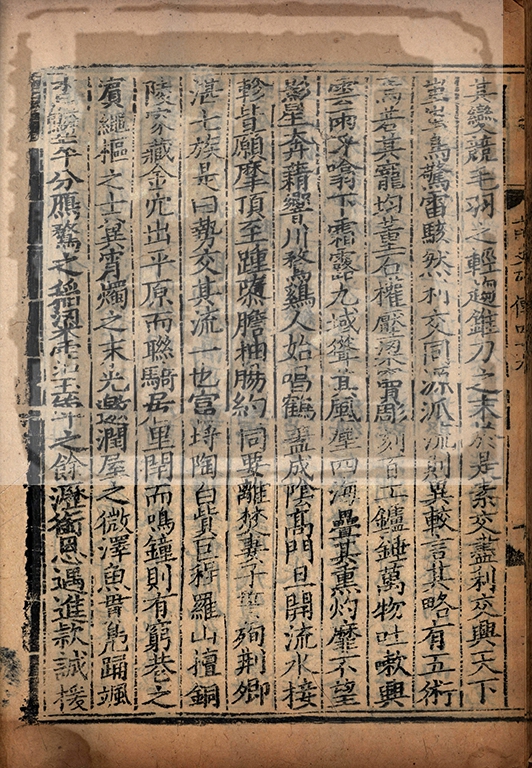 其變競毛羽之輕趨錐刀之末於是素交盡利交興天下
蚩蚩鳥驚雷駭然利交同源派流則異較言其略有五術
焉若其寵均董石權壓梁竇彫刻百工鑪錘萬物吐嗽興
雲雨呼噏下霜露九域聳其風塵四海疊其熏灼靡不望
影星奔藉響川騖鷄人始唱鶴蓋成陰高門旦開流水接
軫皆願摩頂至踵隳膽抽腸約同要離焚妻子誓殉荆卿
湛七族是曰勢交其流一也富埒陶白貲巨程羅山擅銅
陵家藏金穴出平原而聯騎居里閈而鳴鐘則有窮巷之
賓繩樞之士冀宵燭之末光邀潤屋之微澤魚貫鳧踊颯
沓鱗萃分鴈鶩之稻粱沾玉斝之餘瀝銜恩遇進款誠援